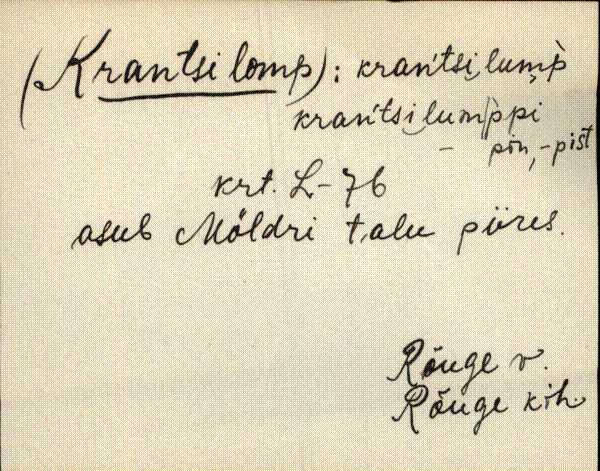 (Krantsi lomp): kran'tsi lum̨p̀
kran'tsi lum|p̀pi
– pin, -pišt
krt. L-76
asub Möldri talu piires.
Rõuge v.
Rõuge kih.